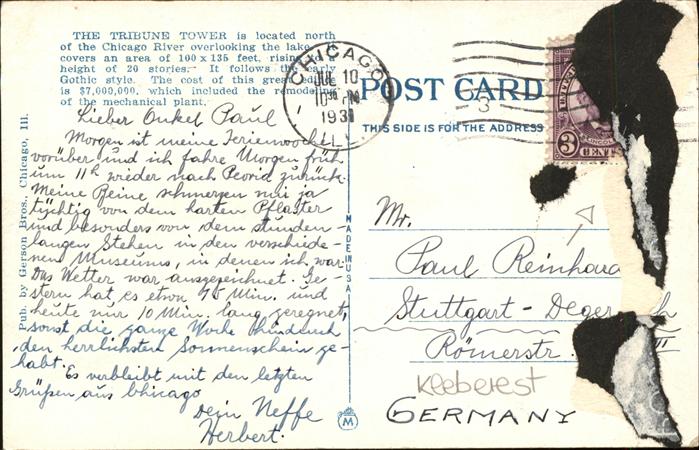 THE TRIBUNE TOWER is located north
of the Chicago River overlooking the lake. It
covers an area of 100 x 135 feet, rising to a
height of 20 stories. It follows the early
Gothic style. The cost of this great edifice
is $7,000,000, which included the remodeling
of the mechanical plant.
Lieber Onkel Paul!
Morgen ist meine Ferienwoche
vorüber und ich fahre Morgen früh
um 11h wieder nach Peoria zurück.
Meine Beine schmerzen mir ja
tüchtig von dem harten Pflaster
und besonders von dem stunden-
langen Stehen in den verschiede-
nen Museums, in denen ich war.
Das Wetter war ausgezeichnet. Ge-
stern hat es etwa 15 Min. und
heute nur 10 Min. lang geregnet,
sonst die ganze Woche hindurch
den herrlichsten Sonnenschein ge-
habt.
Es verbleibt mit den letzten
Grüßen aus Chicago
Dein Neffe
Herbert.
Pub. by Gerson Bros., Chicago, Ill.
MADE IN U S A
M
CHICAGO
JUL 10
10 30 PM
1931
ILL.
3
POST CARD
THIS SIDE IS FOR THE ADDRESS
UNITED
LINCOLN
3 CENTS
Mr.
Paul Reinhard
Stuttgart-Deger ch
Römerstr.
Kleberest
GERMANY